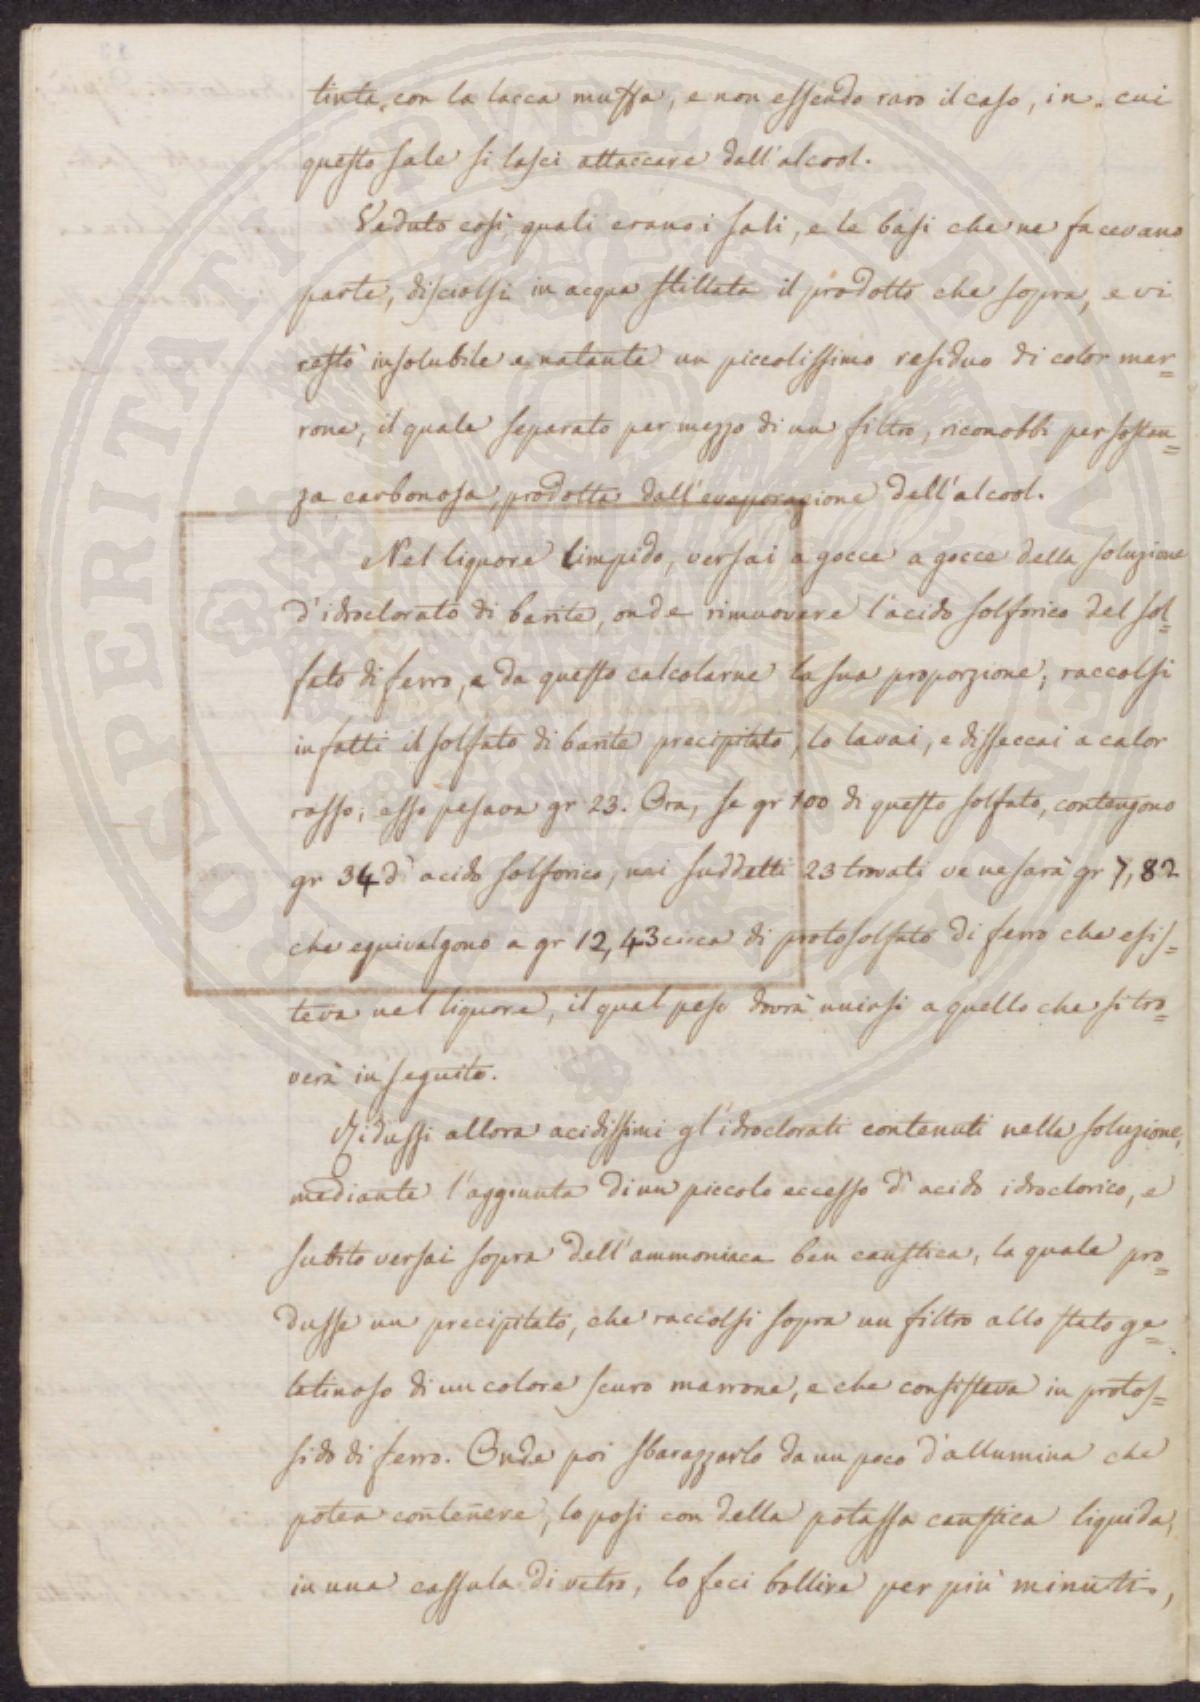 tinta, con la lacca muffa, e non essendo raro il caso, in cui
questo sale si lasci attaccare dall'alcool.
Veduto così, quali erano i sali, e le basi che ne facevano
parte, disciolsi in acqua stillata il prodotto che sopra, e vi
restò insolubile e natante un piccolissimo residuo di color mar=
rone, il quale separato per mezzo di un filtro, riconobbi per sostan=
za carbonosa, prodotta dall'evaporazione dell'alcool.
Nel liquore limpido, versai a gocce a gocce della soluzione
d'idroclorato di barite, onde rimuovere l'acido solforico del sol=
fato di ferro, e da questo calcolarne la sua proporzione; raccolsi
infatti il solfato di barite precipitato, lo lavai, e disseccai a calor
rosso; esso pesava gr 23. Ora, se gr 100 di questo solfato, contengono
gr 34 d'acido solforico, nei suddetti 23 trovati ve ne sarà gr 7,82
che equivalgono a gr 12,43 circa di protosolfato di ferro che esis=
teva nel liquore, il qual peso dovrà unirsi a quello che si tro=
verà in seguito.
Ridussi allora acidissimi gl'idroclorati contenuti nella soluzione,
mediante l'aggiunta di un piccolo eccesso d'acido idroclorico, e
subito versai sopra dell'ammoniaca ben caustica, la quale pro=
dusse un precipitato, che raccolsi sopra un filtro allo stato ge=
latinoso di un colore scuro marrone, e che consisteva in protos=
sido di ferro. Onde poi sbarazzarlo da un poco d'allumina che
potea contenere, lo posi con della potassa caustica liquida,
in una cassula di vetro, lo feci bollire per più minuti,
PROSPERITATI PVBLICAE AVGENDAE